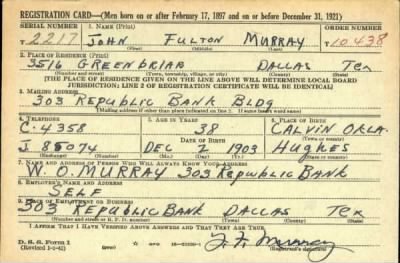 REGISTRATION CARD—(Men born on or after February 17, 1897 and on or before December 31, 1921)
SERIAL NUMBER 1. NAME (Print) ORDER NUMBER
T 2217 JOHN FULTON MURRAY T 10,438
(First) (Middle) (Last)
2. PLACE OF RESIDENCE (Print)
3516 GREENBRIAR DALLAS TEX
(Number and street) (Town, township, village, or city) (County) (State)
[THE PLACE OF RESIDENCE GIVEN ON THE LINE ABOVE WILL DETERMINE LOCAL BOARD
JURISDICTION; LINE 2 OF REGISTRATION CERTIFICATE WILL BE IDENTICAL]
3. MAILING ADDRESS
303 REPUBLIC BANK BLDG
[Mailing address if other than place indicated on line 2. If same insert word same]
4. TELEPHONE 5. AGE IN YEARS 6. PLACE OF BIRTH
C-4358 38 CALVIN OKLA.
DATE OF BIRTH (Town or county)
J 85074 DEC 2 1903 HUGHES
(Exchange) (Number) (Mo.) (Day) (Yr.) (State or country)
7. NAME AND ADDRESS OF PERSON WHO WILL ALWAYS KNOW YOUR ADDRESS
W. O. MURRAY 303 REPUBLIC BANK
8. EMPLOYER'S NAME AND ADDRESS
SELF
9. PLACE OF EMPLOYMENT OR BUSINESS
303 REPUBLIC BANK DALLAS TEX
(Number and street or R. F. D. number) (Town) (County) (State)
I AFFIRM THAT I HAVE VERIFIED ABOVE ANSWERS AND THAT THEY ARE TRUE.
D. S. S. Form 1
(Revised 1-1-42) Murray
(Registrant's signature)